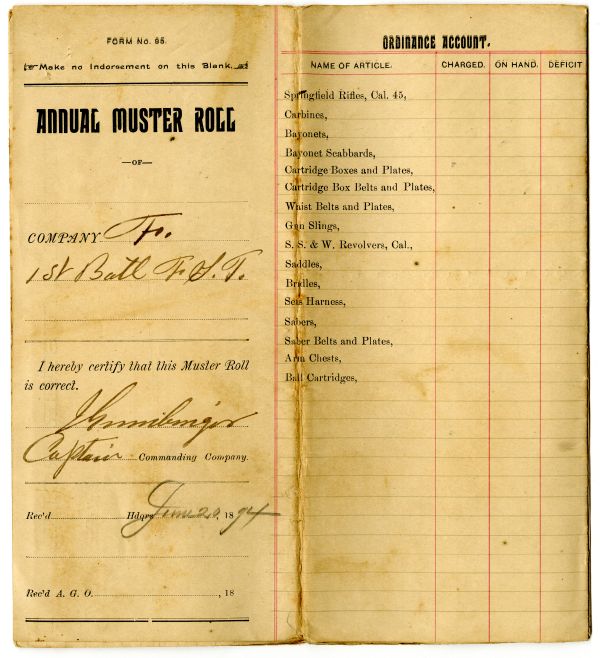 FORM No. 95.
Make no Indorsement on this Blank.
ANNUAL MUSTER ROLL
—OF—
COMPANY F.
1st Batl F. S. T.
I hereby certify that this Muster Roll
is correct.
Captain Commanding Company.
Rec'd Hdqrs June 20, 1894
Rec'd A. G. O. , 18
ORDINANCE ACCOUNT.
NAME OF ARTICLE. CHARGED. ON HAND. DEFICIT
Springfield Rifles, Cal. 45,
Carbines,
Bayonets,
Bayonet Scabbards,
Cartridge Boxes and Plates,
Cartridge Box Belts and Plates,
Waist Belts and Plates,
Gun Slings,
S. S. & W. Revolvers, Cal.,
Saddles,
Bridles,
Sets Harness,
Sabers,
Saber Belts and Plates,
Arm Chests,
Ball Cartridges,